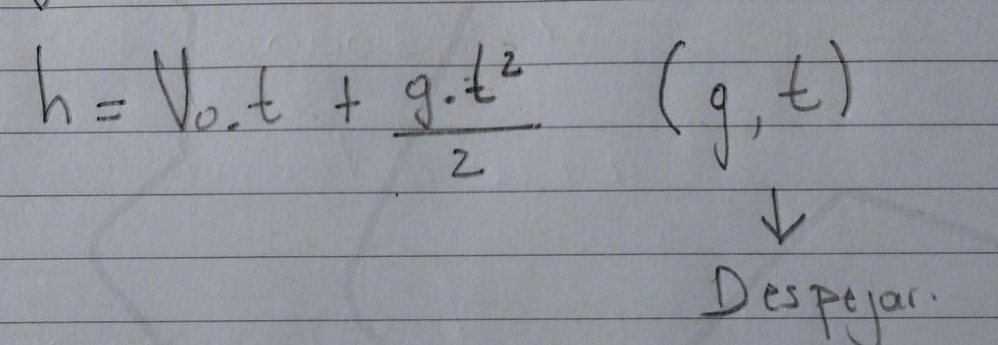 h = V₀.t + g.t²/2 (g, t)
↓
Despejar.